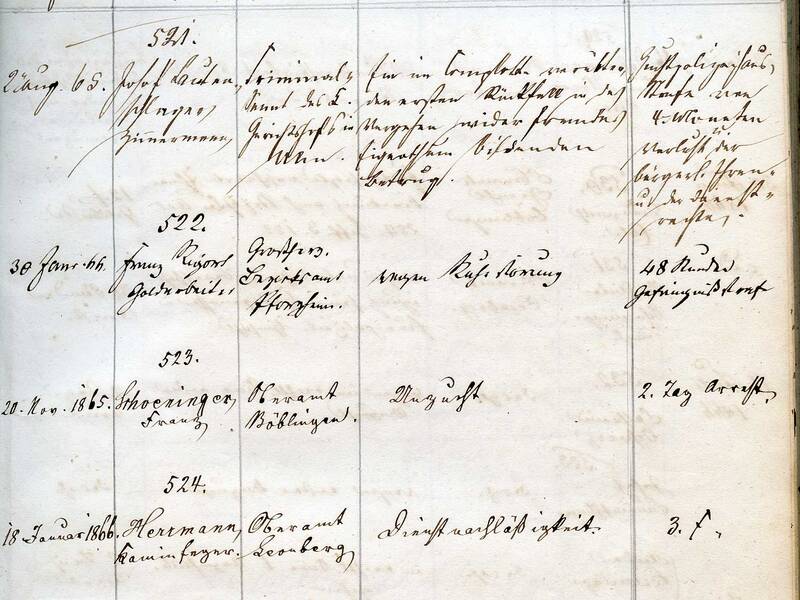 521.
2 Aug. 65. Josef Lauten-
schlager,
Zimmermann,
Criminal-
Senat des K.
Gerichtshofs in
Ulm.
für im Complott verübten,
den ersten Rückfall in das
Vergehen wider fremdes
Eigenthum bildenden
Betrug.
Kreisgefängniß
Strafe von
4. Monaten
Verlust der
bürgerl. Ehren-
u. der Dienst-
rechte.
522.
30 Janr. 66.
Franz
Goldarbeiter
Großherz.
Bezirksamt
Pforzheim.
wegen Ruhestörung
48 Stunden
Gefängnißstraf
523.
20. Nov. 1865. Schoeninger,
Franz
Oberamt
Böblingen.
Unzucht
2. Tag Arrest,
524.
18 Januar 1866. Herrmann,
Kaminfeger.
Oberamt
Leonberg
Dienstnachläßigkeit.
3. f.